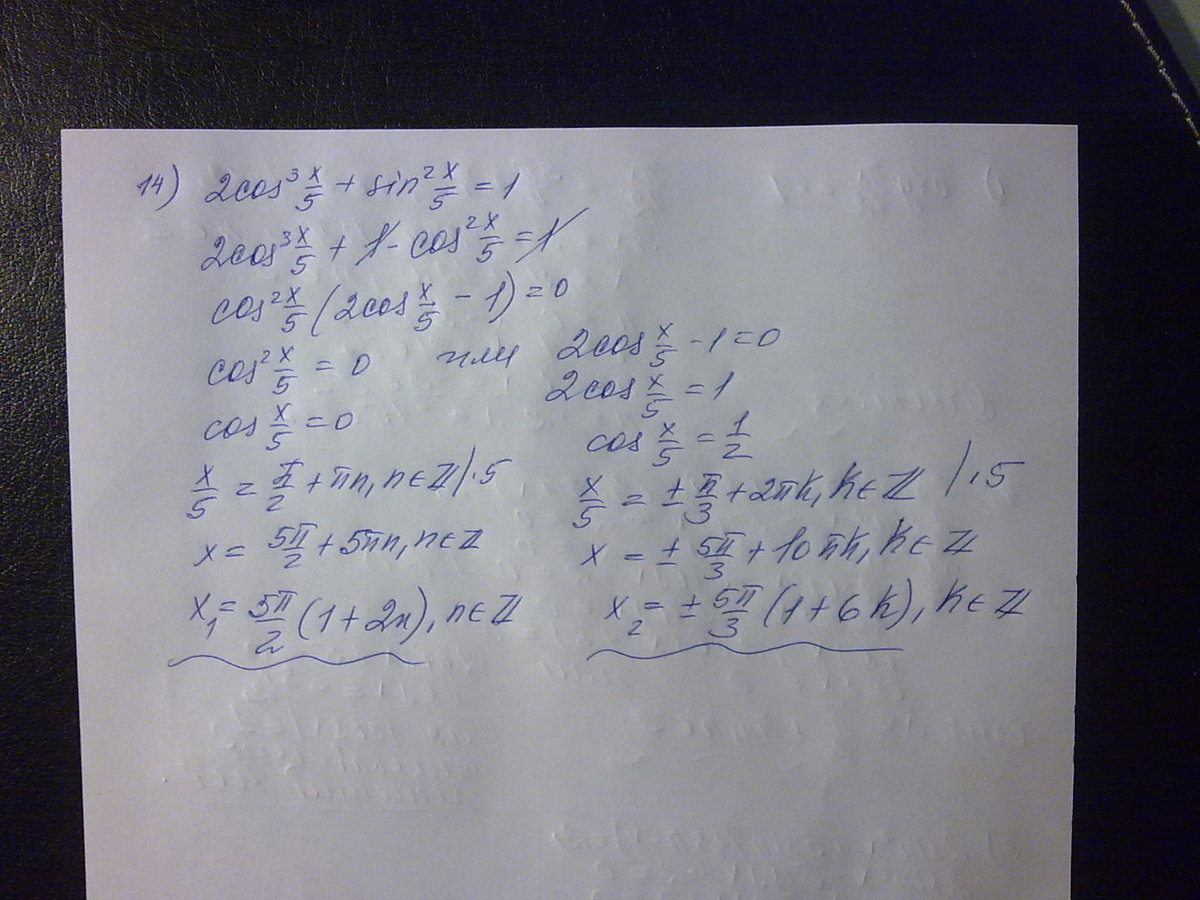 14) 2cos³ x/5 + sin² x/5 = 1
2cos³ x/5 + 1 - cos² x/5 = 1
cos² x/5 (2cos x/5 - 1) = 0
cos² x/5 = 0 или 2cos x/5 - 1 = 0
2cos x/5 = 1
cos x/5 = 0
cos x/5 = 1/2
x/5 = π/2 + πn, n ∈ ℤ /·5
x/5 = ± π/3 + 2πk, k ∈ ℤ /·5
x = 5π/2 + 5πn, n ∈ ℤ
x = ± 5π/3 + 10πk, k ∈ ℤ
x₁ = 5π/2 (1 + 2n), n ∈ ℤ
x₂ = ± 5π/3 (1 + 6k), k ∈ ℤ